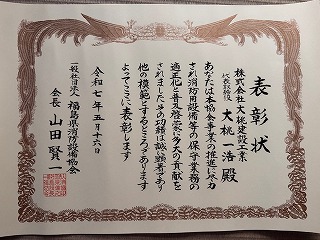 表彰状
株式会社大桃建設工業
代表取締役
大桃一浩殿
あなたは本協会事業の推進に尽力
され消防用設備等の保守業務の
適正化と普及啓蒙に多大の貢献を
されましたその功績は誠に顕著であり
他の模範とするところであります
よってここに表彰します
令和七年五月十六日
一般社団法人福島県消防設備協会
会長山田賢一